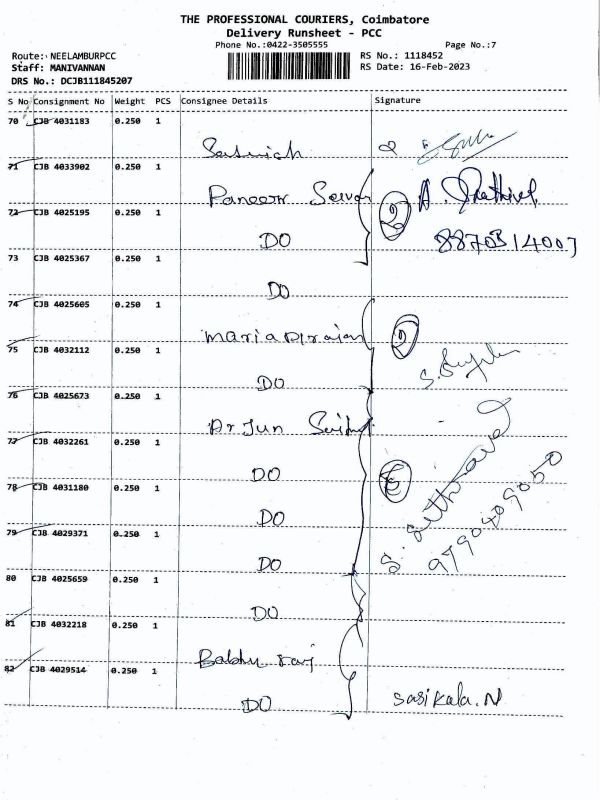 THE PROFESSIONAL COURIERS, Coimbatore
Delivery Runsheet - PCC
Phone No.:0422-3505555 Page No.:7
Route: NEELAMBURPCC RS No.: 1118452
Staff: MANIVANNAN RS Date: 16-Feb-2023
DRS No.: DCJB111845207
S No Consignment No Weight PCS Consignee Details Signature
70 CJB 4031183 0.250 1
Sathish
71 CJB 4033902 0.250 1
Paneer Selvam
72 CJB 4025195 0.250 1 2
DO 8870314007
73 CJB 4025367 0.250 1
DO
74 CJB 4025605 0.250 1
2
75 CJB 4032112 0.250 1
DO
76 CJB 4025673 0.250 1
Arjun
77 CJB 4032261 0.250 1
DO
78 CJB 4031180 0.250 1
DO 9790409050
79 CJB 4029371 0.250 1
DO
80 CJB 4025659 0.250 1
DO
81 CJB 4032218 0.250 1
82 CJB 4029514 0.250 1
DO Sasikala.N